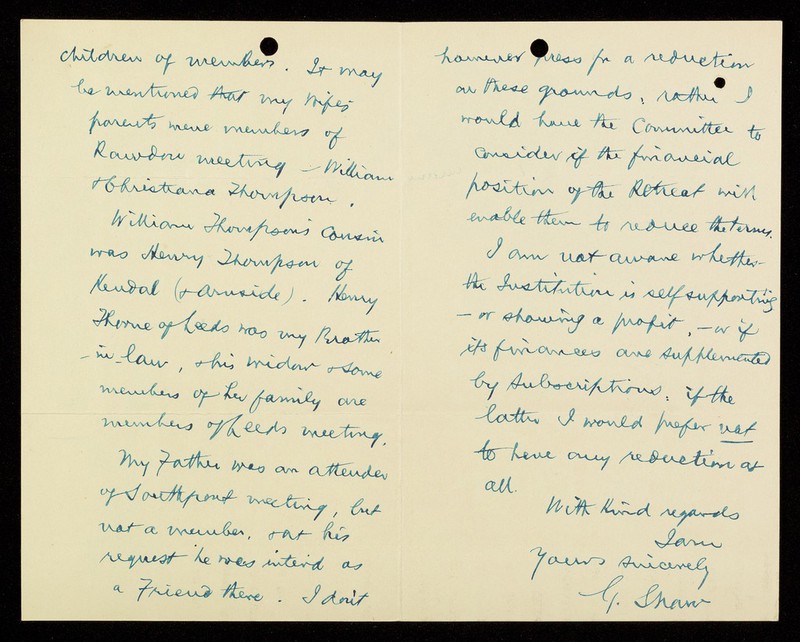 children of members. It may
be mentioned that my wife's
parents were members of
Rawdon meeting - William
& Christiana Thompson.
William Thompson's cousin
was Henry Thompson of
Kendal (& Arnside). Henry
Thorne of Leeds was my Brother
-in-law, & his widow & some
members of her family are
members of Leeds meeting.
My Father was an attender
of Southport meeting, but
not a member, & at his
request he was inter'd as
a Friend there. I don't
however press for a reduction
on these grounds, rather I
would have the Committee to
consider if the financial
position of the Retreat will
enable them to reduce the terms.
I am not aware whether
the Institution is self supporting
- or showing a profit, - or if
its finances are supplemented
by subscriptions, if the
latter I would prefer not
to have any reduction at
all.
With kind regards
I am
Yours sincerely
G. Shaw